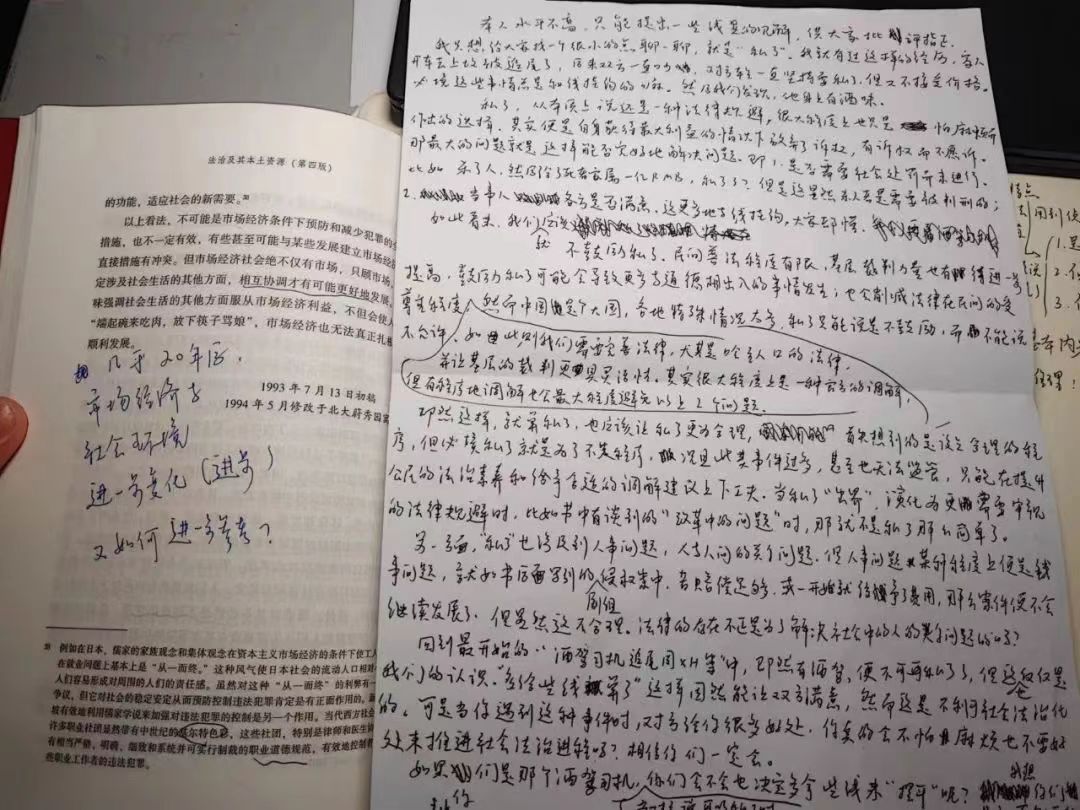 法治及其本土资源（第四版）
的功能，适应社会的新需要。
以上看法，不可能是市场经济条件下预防和减少犯罪的
措施，也不一定有效，有些甚至可能与某些发展建立市场经
直接措施有冲突。但市场经济社会绝不仅有市场，只顾市场，
定涉及社会生活的其他方面，相互协调才有可能更好地发展
味强调社会生活的其他方面服从市场经济利益，不但会使人
“端起碗来吃肉，放下筷子骂娘”，市场经济也无法真正扎根
顺利发展。
1993 年 7 月 13 日初稿
1994 年 5 月修改于北大蔚秀园寓
几乎20年后，
市场经济与
社会环境
进一步变化（进步）
又如何进一步参考？
例如在日本，儒家的家族观念和集体观念在资本主义市场经济的条件下使工人
在就业问题上基本上是“从一而终。”这种风气使日本社会的流动人口相对
人们容易形成对周围的人们的责任感。虽然对这种“从一而终”的利弊有
争议，但它对社会的稳定安定从而预防控制违法犯罪肯定是有正面作用的。
坡有效地利用儒家学说来加强对违法犯罪的控制是另一个作用。当代西方社会
许多职业社团是然带有中世纪的基尔特色彩，这些社团，特别是律师和医生
有相当严格、明确、细致和系统并可实行制裁的职业道德规范，有效地控制
些职业工作者的违法犯罪。
本人水平不高，只能提出一些浅显的见解，供大家批评指正。
我只想给大家找一个很小的点聊一聊，就是“私了”。我就有过这样的经历，家人
开车去上坟被追尾了，后来双方一直，对方车主一直坚持要私了，但又不接受价格。
环境这些事情总是和钱挂钩的嘛。然后我们发现，他身上有酒味。
私了，从本质上说还是一种法律规避，很大程度上也只是怕麻烦而
作出的选择。其实便是自身获得最大利益的情况下放弃了诉权，有诉权而不愿诉。
那最大的问题就是这样能否完好地解决问题。即1、是否需要社会处罚来进行。
比如杀了人，然后给了死者家属一亿RMB，私了？但是这显然杀人者是需要被判刑的；
2、当事人各方是否满意，这更多地与钱挂钩，大家都懂。
如此看来，我们应该就不鼓励私了。民间普法程度有限，基层裁判力量也有待进一步
提高，鼓励私了可能会导致更多与道德相出入的事情发生；也会削减法律在民间的受
尊重程度。然而中国是个大国，各地特殊情况太多，私了只能说是不鼓励，而不能说
不允许。如此则我们需要完善法律，尤其是吃全人口的法律，
并让基层的裁判更具灵活性。其实很大程度上是一种官方的调解，
但有程序地调解也会最大程度避免以上2个问题。
即然这样，就算私了，也应该让私了更为合理，首先想到的是设立合理的程
序，但必竟私了就是为了不走程序，况且此类事件过多，甚至也无法监管，只能在提升
公民的法治素养和给予合适的调解建议上下工夫。当私了“出界”，演化为更需要审视
的法律规避时，比如书中有谈到的“改革中的问题”时，那就不是私了那么简单了。
另一方面，“私了”也涉及到人事问题，人与人间的关系问题。但人事问题某种程度上便是钱
事问题，就如书后面写到的剧组，若赔偿足够，或一开始就给予了费用，那么案件便不会
继续发展了，但显然这不合理。法律的存在不正是为了解决社会中的人的关系问题的吗？
回到最开始的“酒驾司机追尾”中，即然有酒驾，便不可再私了了，但这仅仅是
我们的认识。多给些钱“算了”这样固然能让双方满意，然而这是不利于社会法治化
的。可是当你遇到这种事件时，对方给你很多好处，你真的会不怕麻烦也不要好
处来推进社会法治进程吗？相信你们一定会。
如果你们是那个酒驾司机，你们会不会也决定多拿些钱来“摆平”呢？我想